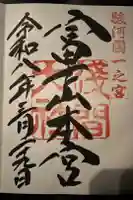 駿河國一之宮
富士山本宮
淺間大社
令和八年 月 日